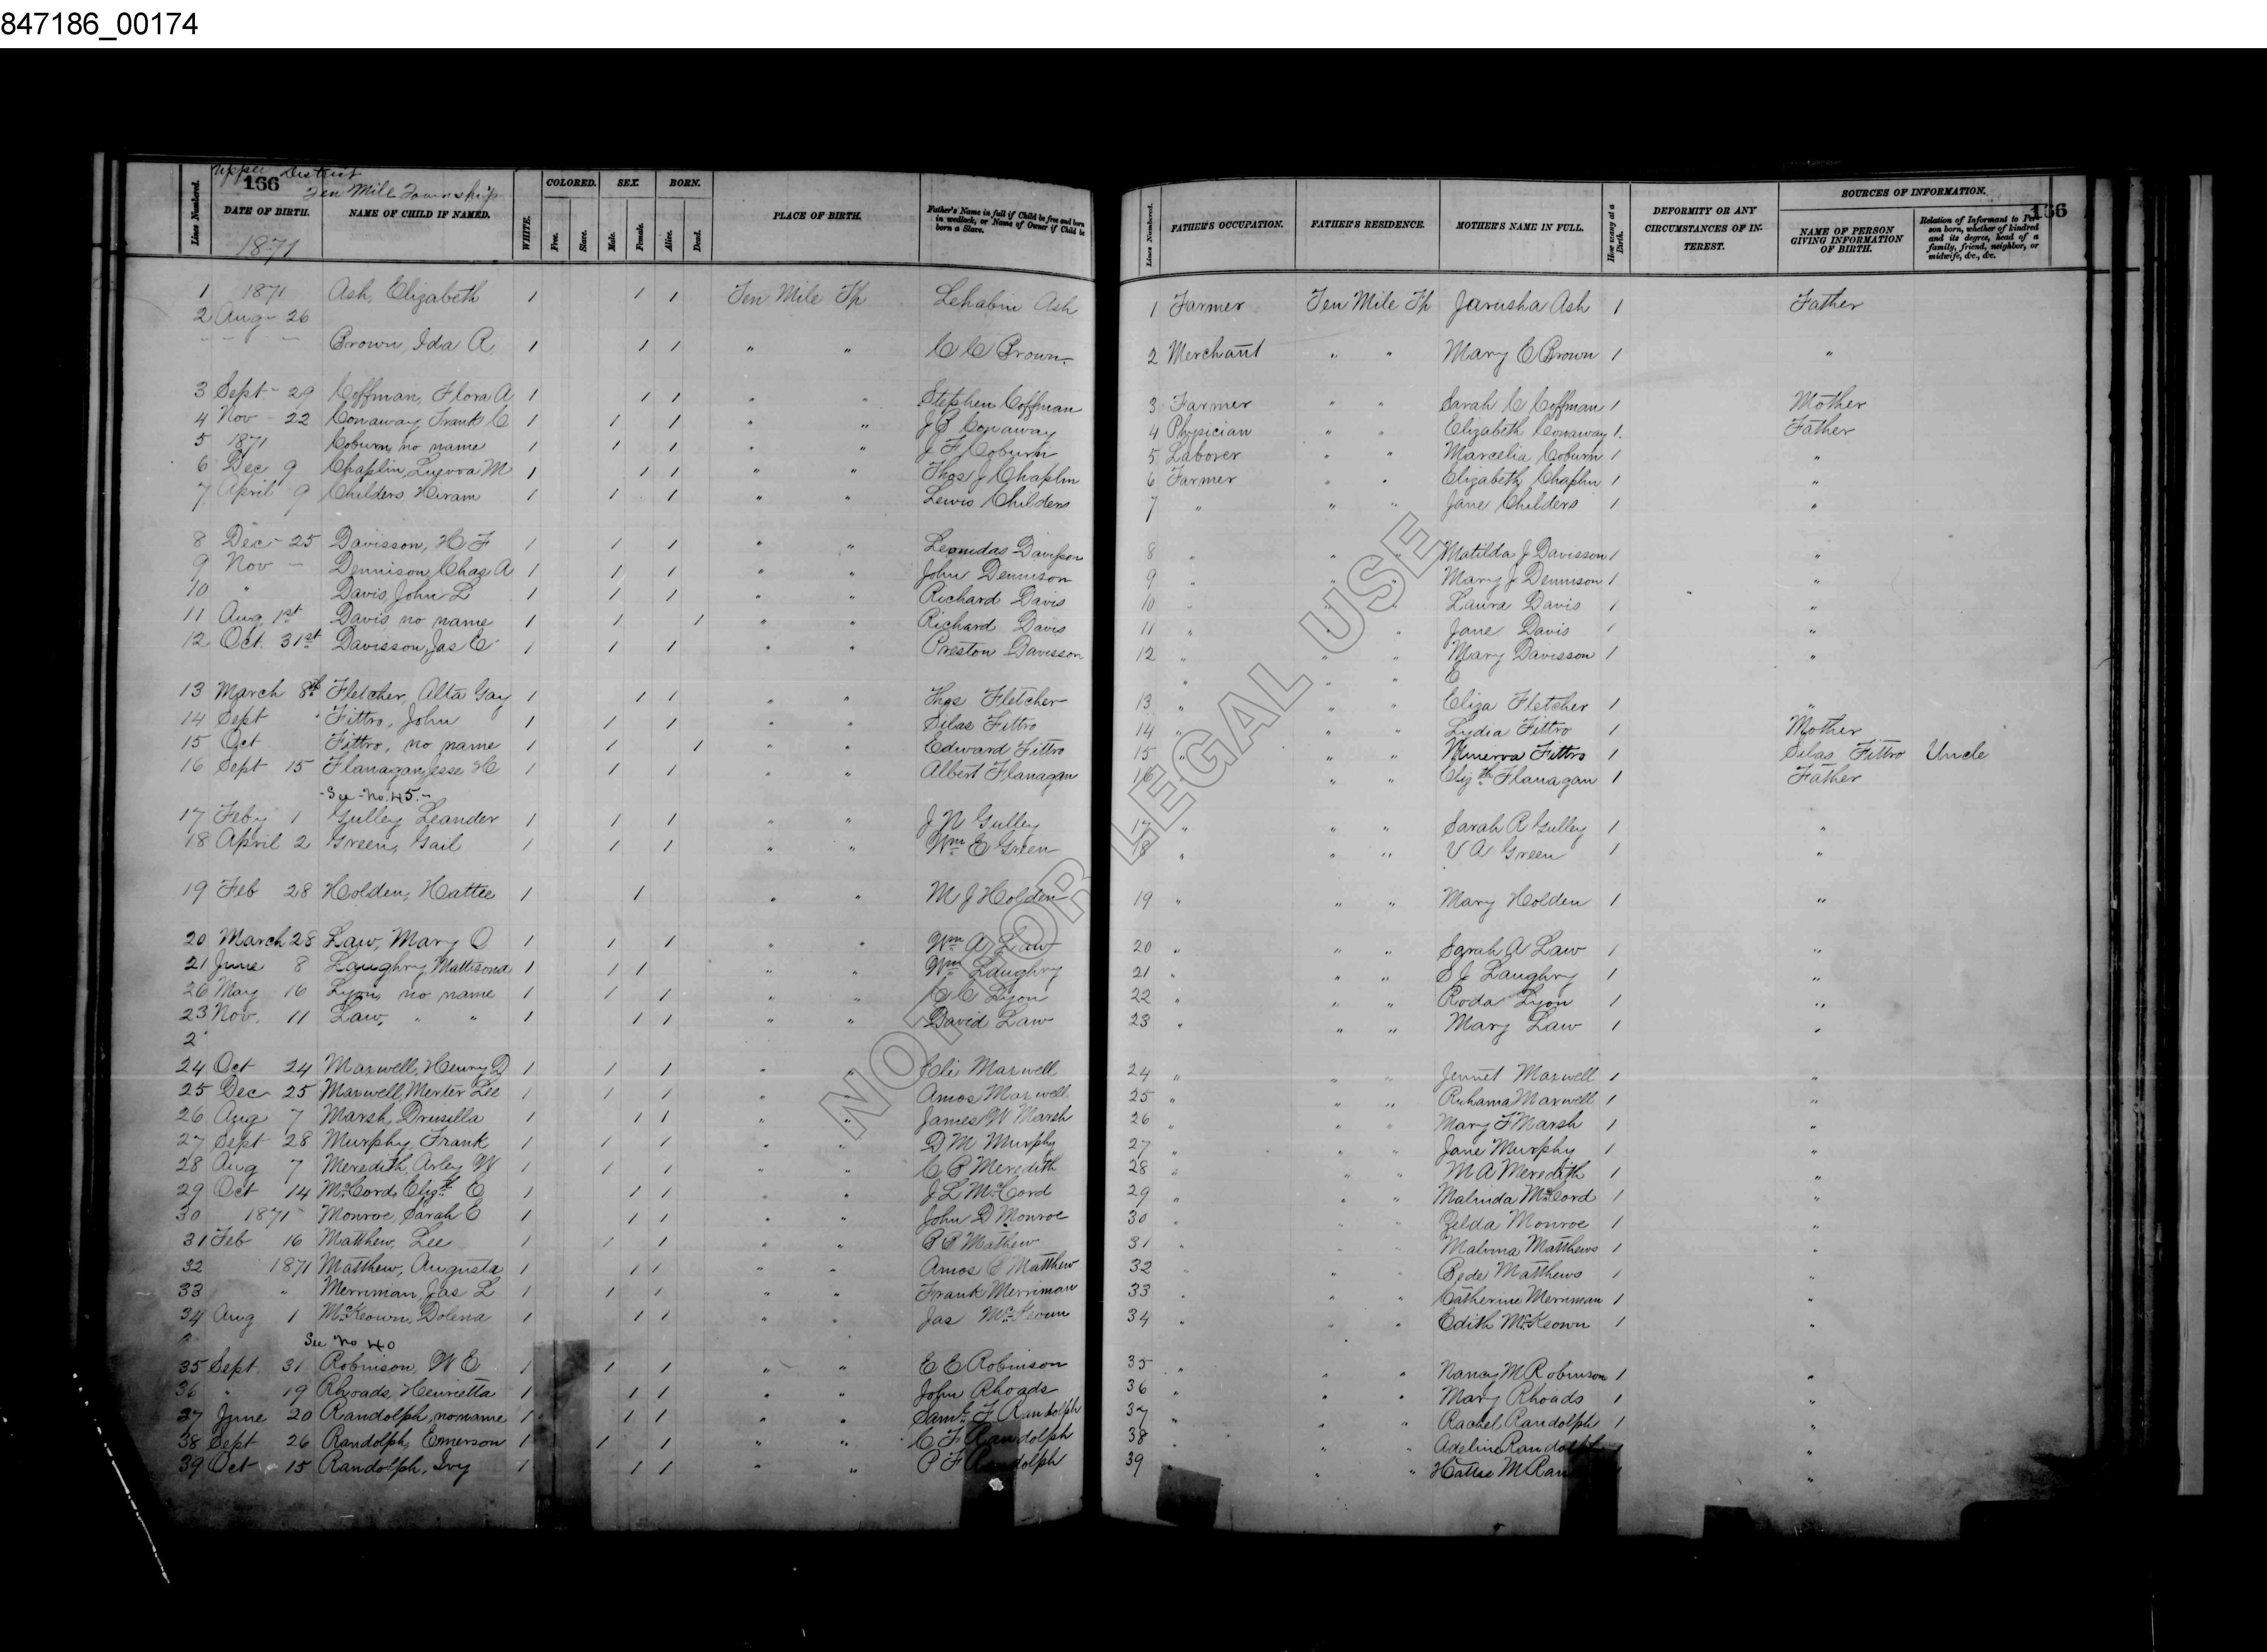 847186_00174
Upper District
166 Ten Mile Township
Lines Numbered. DATE OF BIRTH. NAME OF CHILD IF NAMED. WHITE. COLORED. Free. Slave. SEX. Male. Female. BORN. Alive. Dead. PLACE OF BIRTH. Father's Name in full if Child be free and born in wedlock, or Name of Owner if Child be born a Slave.
1871
1 1871 Ash, Elizabeth 1 1 1 Ten Mile Tp Ash
2 Aug - 26
Brown, Ida A 1 1 1 " " C C Brown
3 Sept - 29 Coffman, Flora A 1 1 1 " " Stephen Coffman
4 Nov - 22 Conaway Frank C 1 1 1 " " J B Conaway
5 1871 Coburn, no name 1 1 1 " " J F Coburn
6 Dec 9 Chaplin, M 1 1 1 " " Thos J Chaplin
7 April 9 Childers, Hiram 1 1 1 " " Lewis Childers
8 Dec - 25 Davisson, H F 1 1 1 " " Leonidas Davisson
9 Nov - Dennison, Chas A 1 1 1 " " John Dennison
10 " Davis, John L 1 1 1 " " Richard Davis
11 Aug 1st Davis no name 1 1 1 " " Richard Davis
12 Oct. 31st Davisson, Jas E 1 1 1 " " Preston Davisson
13 March 8th Fletcher, Alta Gay 1 1 1 " " Thos Fletcher
14 Sept Fittro, John 1 1 1 " " Silas Fittro
15 Oct Fittro, no name 1 1 1 " " Edward Fittro
16 Sept 15 Flanagan, Jesse H 1 1 1 " " Albert Flanagan
- See - No. 45. -
17 Feby 1 Gulley Leander 1 1 1 " " J N Gulley
18 April 2 Green, Gail 1 1 1 " " Wm E Green
19 Feb 28 Holden, Hattie 1 1 " " M J Holden
20 March 28 Law, Mary O 1 1 1 " " Wm A Law
21 June 8 Laughry, 1 1 1 " " Wm Laughry
26 May 16 Lyon, no name 1 1 1 " " C C Lyon
23 Nov. 11 Law, " " 1 1 1 " " David Law
2
24 Oct 24 Maxwell, Henry D 1 1 1 " " Eli Maxwell
25 Dec 25 Maxwell, Lee 1 1 1 " " Amos Maxwell
26 Aug 7 Marsh, Drusilla 1 1 1 " " James W Marsh
27 Sept 28 Murphy, Frank 1 1 1 " " D M Murphy
28 Aug 7 Meredith, Arley W 1 1 1 " " C B Meredith
29 Oct 14 McCord, Elizth E 1 1 1 " " J L McCord
30 1871 Monroe, Sarah E 1 1 1 " " John D Monroe
31 Feb 16 Matthew, Lee 1 1 1 " " Mathew
32 1871 Matthew, Augusta 1 1 1 " " Amos Matthew
33 " Merriman, Jas L 1 1 1 " " Frank Merriman
34 Aug 1 McKeown, Dolena 1 1 1 " " Jas McKeown
2 See No 40
35 Sept. 31 Robinson, W E 1 1 1 " " E E Robinson
36 " 19 Rhoads, Henrietta 1 1 1 " " John Rhoads
37 June 20 Randolph, no name 1 1 1 " " Saml F Randolph
38 Sept 26 Randolph, Emerson 1 1 1 " " C F Randolph
39 Oct 15 Randolph, Ivy 1 1 1 " " P F Randolph
Lines Numbered. FATHER'S OCCUPATION. FATHER'S RESIDENCE. MOTHER'S NAME IN FULL. How many at a Birth. DEFORMITY OR ANY CIRCUMSTANCES OF INTEREST. SOURCES OF INFORMATION. 166
NAME OF PERSON GIVING INFORMATION OF BIRTH. Relation of Informant to Person born, whether of kindred and its degree, head of a family, friend, neighbor, or midwife, &c., &c.
1 Farmer Ten Mile Tp Jarusha Ash 1 Father
2 Merchant " " Mary E Brown 1 "
3 Farmer " " Sarah C Coffman 1 Mother
4 Physician " " Elizabeth Conaway 1. Father
5 Laborer " " Marcelia Coburn 1 "
6 Farmer " " Elizabeth Chaplin 1 "
7 " " " Jane Childers 1 "
8 " " " Matilda J Davisson 1 "
9 " " " Mary J Dennison 1 "
10 " " " Laura Davis 1 "
11 " " " Jane Davis 1 "
12 " " " Mary Davisson 1 "
" " " E
13 " " " Eliza Fletcher 1 "
14 " " " Lydia Fittro 1 Mother
15 " " " Minerva Fittro 1 Silas Fittro Uncle
16 " " Elizth Flanagan 1 Father
17 " " " Sarah A Gulley 1 "
18 " " " V A Green 1 "
19 " " " Mary Holden 1 "
20 " " " Sarah A Law 1 "
21 " " " S J Laughry 1 "
22 " " " Roda Lyon 1 "
23 " " " Mary Law 1 "
24 " " " Jennet Maxwell 1 "
25 " " " Ruhama Maxwell 1 "
26 " " " Mary F Marsh 1 "
27 " " " Jane Murphy 1 "
28 " " " M A Meredith 1 "
29 " " " Malinda McCord 1 "
30 " " " Zelda Monroe 1 "
31 " " " Malvina Matthews 1 "
32 " " " Matthews 1 "
33 " " " Catherine Merriman 1 "
34 " " " Edith McKeown 1 "
35 " " Nancy M Robinson 1 "
36 " " " Mary Rhoads 1 "
37 " " " Rachel Randolph 1 "
38 " " " Adeline Randolph 1 "
39 " " " Hattie M Ran "
NOT FOR LEGAL USE